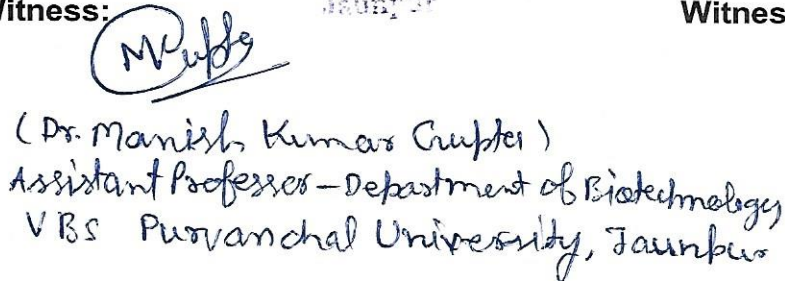 Witness: Jaunpur Witnes
MGupta
(Dr. Manish Kumar Gupta)
Assistant Professor - Department of Biotechnology
VBS Purvanchal University, Jaunpur